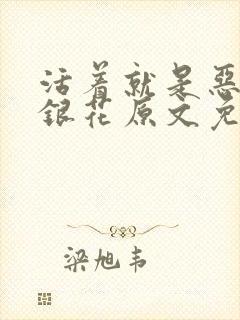 活着就是恶
银花原文免
梁旭韦